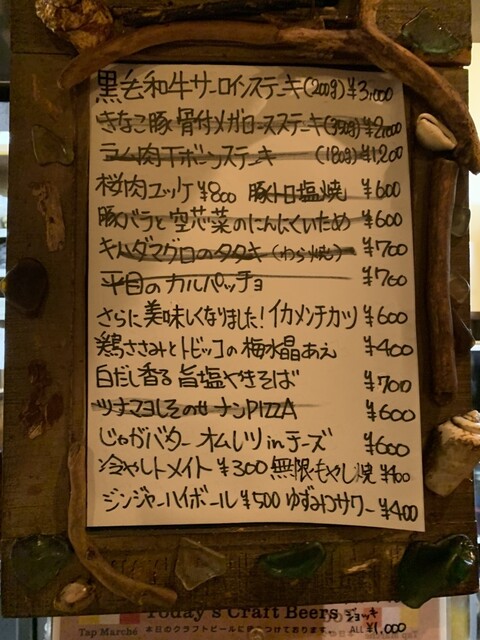 黒毛和牛サーロインステーキ(200g)¥3,000
きなこ豚 骨付メガロースステーキ(350g)¥2,000
ラム肉Tボーンステーキ (180g)¥1,200
桜肉ユッケ ¥800 豚トロ塩焼 ¥600
豚バラと空芯菜のにんにくいため ¥600
キハダマグロのタタキ(わら焼) ¥700
平目のカルパッチョ ¥760
さらに美味しくなりました!イカメンチカツ ¥600
鶏ささみとトビッコの梅水晶あえ ¥400
白だし香る 旨塩やきそば ¥700
ツナマヨしそのせナンPIZZA ¥600
じゃがバター オムレツinチーズ ¥600
冷やしトメイト ¥300 無限もやし焼 ¥400
ジンジャーハイボール ¥500 ゆずみつサワー ¥400
Today's Craft Beers ジョッキ
Tap Marché 本日のクラフトビールに ALL ¥1,000